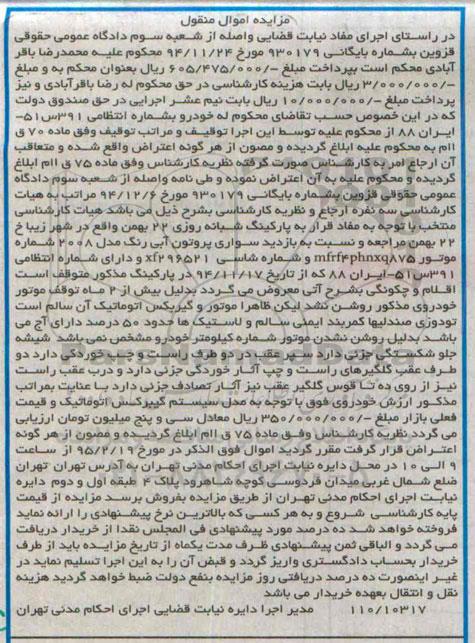 مزایده اموال منقول
در راستای اجرای مفاد نیابت قضایی واصله از شعبه سوم دادگاه عمومی حقوقی
قزوین بشماره بایگانی ۹۳۰۱۷۹ مورخ ۹۴/۱۱/۲۴ محکوم علیه محمدرضا باقر
آبادی محکم است بپرداخت مبلغ -/۶۰۵/۴۷۵/۰۰۰ ریال بعنوان محکم به و مبلغ
-/۳/۰۰۰/۰۰۰ ریال بابت هزینه کارشناسی در حق محکوم له رضا باقرآبادی و نیز
پرداخت مبلغ -/۱۰/۰۰۰/۰۰۰ ریال بابت نیم عشر اجرایی در حق صندوق دولت
که در این خصوص حسب تقاضای محکوم له خودرو بشماره انتظامی ۳۹۱س۵۱-
ایران ۸۸ از محکوم علیه توسط این اجرا توقیف و مراتب توقیف وفق ماده ۷۰ ق
اام به محکوم علیه ابلاغ گردیده و مصون از هر گونه اعتراض واقع شده و متعاقب
آن ارجاع امر به کارشناس صورت گرفته نظریه کارشناس وفق ماده ۷۵ ق اام ابلاغ
گردیده و محکوم علیه به آن اعتراض نموده و طی نامه واصله از شعبه سوم دادگاه
عمومی حقوقی قزوین بشماره بایگانی ۹۳۰۱۷۹ مورخ ۹۴/۱۲/۶ مراتب به هیات
کارشناسی سه نفره ارجاع و نظریه کارشناسی بشرح ذیل می باشد هیات کارشناسی
منتخب با توجه به مفاد قرار به پارکینگ شبانه روزی ۲۲ بهمن واقع در شهر زیبا خ
۲۲ بهمن مراجعه و نسبت به بازدید سواری پروتون آبی رنگ مدل ۲۰۰۸ شماره
موتور mfrf4phnxq875 و شماره شاسی xf296521 و دارای شماره انتظامی
۳۹۱س۵۱-ایران ۸۸ که از تاریخ ۹۴/۱۱/۱۷ در پارکینگ مذکور متوقف است
اقلام و چگونگی بشرح آتی معروض می گردد بدلیل بیش از ۲ ماه توقف موتور
خودروی مذکور روشن نشد لیکن ظاهرا موتور و گیربکس اتوماتیک آن سالم است
تودوزی صندلیها کمربند ایمنی سالم و لاستیک ها حدود ۵۰ درصد دارای آج می
باشد بدلیل روشن نشدن موتور شماره کیلومتر خودرو مشخص نمی باشد شیشه
جلو شکستگی جزئی دارد سپر عقب در دو طرف راست و چپ خوردگی دارد دو
طرف عقب گلگیرهای راست و چپ آثار خوردگی جزئی دارد و درب عقب راست
نیز از روی ده تا قوس گلگیر عقب نیز آثار تصادف جزئی دارد با عنایت بمراتب
مذکور ارزش خودروی فوق با توجه به مدل سیستم گیربکس اتوماتیک و قیمت
فعلی بازار مبلغ -/۳۵۰/۰۰۰/۰۰۰ ریال معادل سی و پنج میلیون تومان ارزیابی
می گردد نظریه کارشناس وفق ماده ۷۵ ق اام ابلاغ گردیده و مصون از هر گونه
اعتراض قرار گرفت مقرر گردید اموال فوق الذکر در مورخ ۹۵/۲/۱۹ از ساعت
۹ الی ۱۰ در محل دایره نیابت اجرای احکام مدنی تهران به آدرس تهران تهران
ضلع شمال غربی میدان فردوسی کوچه شاهرود پلاک ۴ طبقه اول و دوم دایره
نیابت اجرای احکام مدنی تهران از طریق مزایده بفروش برسد مزایده از قیمت
پایه کارشناسی شروع و به هر کسی که بالاترین نرخ پیشنهادی را ارائه نماید
فروخته خواهد شد ده درصد مورد پیشنهادی فی المجلس نقدا از خریدار دریافت
می گردد و الباقی ثمن پیشنهادی ظرف مدت یکماه از تاریخ مزایده باید از طرف
خریدار بحساب دادگستری واریز گردد و قبض آن را به این اجرا تسلیم نماید در
غیر اینصورت ده درصد دریافتی روز مزایده بنفع دولت ضبط خواهد گردید هزینه
نقل و انتقال بعهده خریدار می باشد
۱۱۰/۱۰۳۱۷ مدیر اجرا دایره نیابت قضایی اجرای احکام مدنی تهران